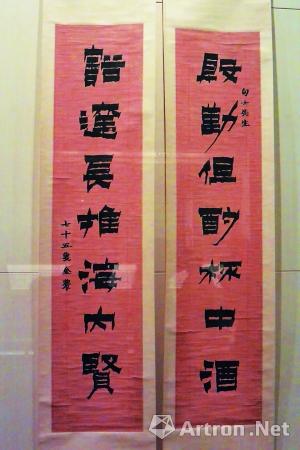 句山先生
殷勤但酌杯中酒
豁達長推海内賢
七十五叟金農
Artron.Net